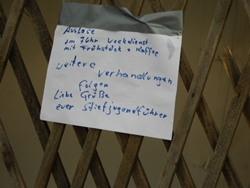 Auslage
im Führ. Weckdienst
mit Frühstück + Kaffee
weitere
Verhandlungen
folgen
Liebe Grüße
euer Stiefjugendführer